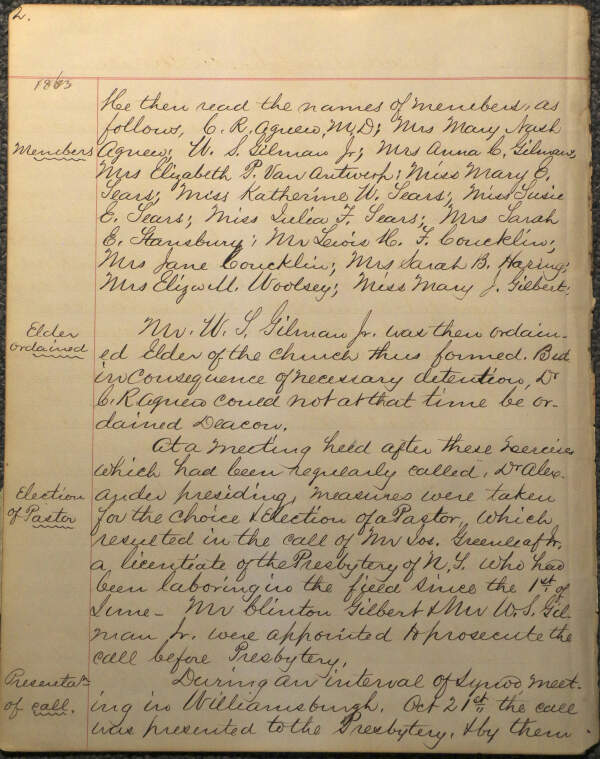 2.
1863
He then read the names of members, as
follows, C. R. Agnew, M.D; Mrs Mary Nash
Members
Agnew; W. S. Gilman Jr; Mrs Anna C. Gilman;
Mrs Elizabeth P. Van Antwerp; Miss Mary E.
Sears; Miss Katherine W. Sears; Miss Susie
E. Sears; Miss Julia F. Sears; Mrs Sarah
E. Stansbury; Mr Lewis H. F. Coucklin;
Mrs Jane Coucklin; Mrs Sarah B. Haring;
Mrs Eliza M. Woolsey; Miss Mary J. Gilbert.
Elder
ordained
Mr. W. S. Gilman Jr. was then ordain-
ed Elder of the church thus formed. But
in consequence of necessary detention, Dr
C. R. Agnew could not at that time be or-
dained Deacon.
At a meeting held after these exercises
which had been regularly called, Dr Alex-
ander presiding, measures were taken
Election
of Pastor
for the choice & election of a Pastor, which
resulted in the call of Mr Jos. Greenleaf Jr.
a licentiate of the Presbytery of N.Y. who had
been laboring in the field since the 1st of
June - Mr Clinton Gilbert & Mr W. S. Gil-
man Jr. were appointed to prosecute the
call before Presbytery.
Presentatn
of call.
During an interval of Synod meet-
ing in Williamsburgh, Oct 21st, the call
was presented to the Presbytery, & by them